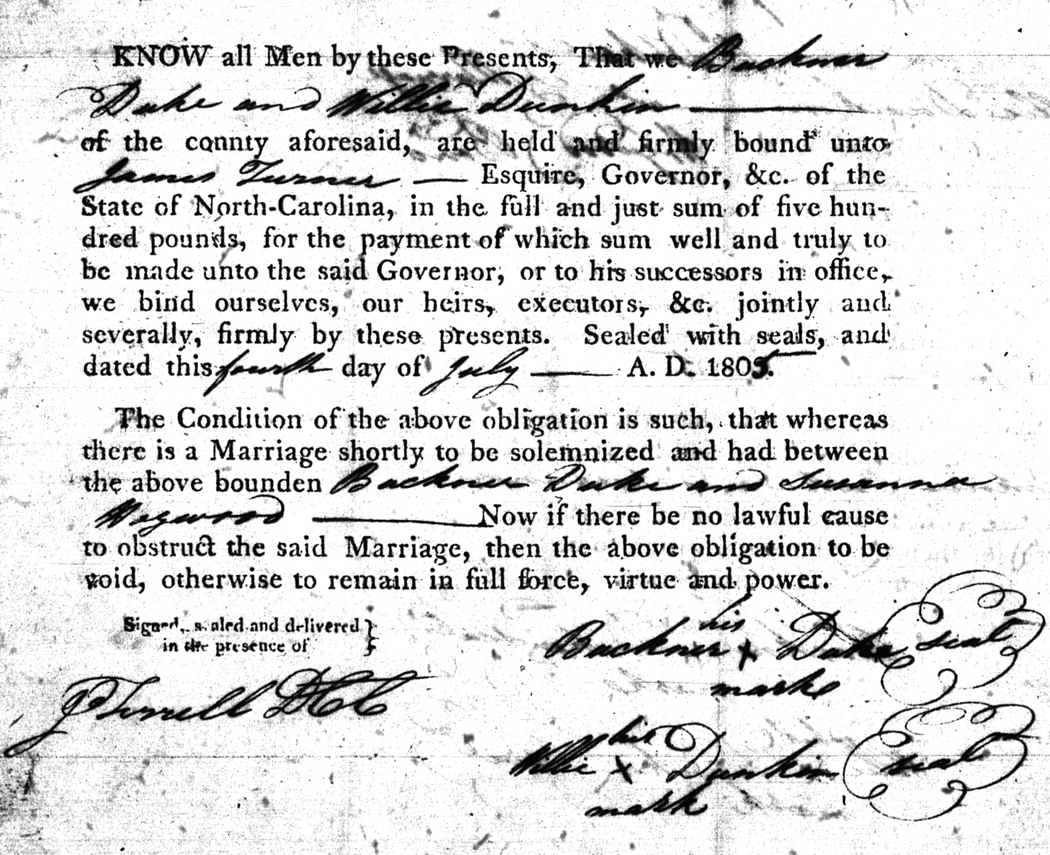 KNOW all Men by these Presents, That we Buckner
Duke and Willie Dunkin
of the county aforesaid, are held and firmly bound unto
James Turner — Esquire, Governor, &c. of the
State of North-Carolina, in the full and just sum of five hun-
dred pounds, for the payment of which sum well and truly to
be made unto the said Governor, or to his successors in office,
we bind ourselves, our heirs, executors, &c. jointly and
severally, firmly by these presents. Sealed with seals, and
dated this fourth day of July — A. D. 1805.
The Condition of the above obligation is such, that whereas
there is a Marriage shortly to be solemnized and had between
the above bounden Buckner Duke and Susanna
Hogwood — Now if there be no lawful cause
to obstruct the said Marriage, then the above obligation to be
void, otherwise to remain in full force, virtue and power.
Signed, sealed and delivered }
in the presence of
his
Buckner x Duke seal
mark
J Terrell DCC
his
Willie x Dunkin seal
mark